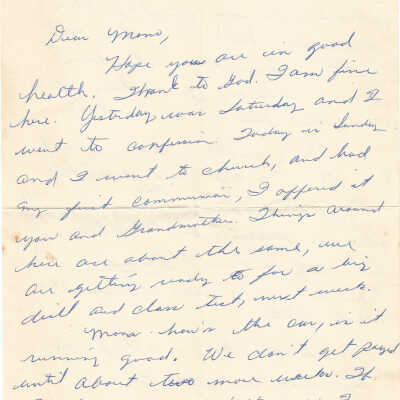 Dear Mona,
Hope you are in good
health. Thank to God. I am fine
here. Yesterday was Saturday and I
went to confession. Today is Sunday
and I went to church, and had
my first communion, I offered it
you and Grandmother. Things around
here are about the same, we
are getting ready to for a big
drill and class test, next week.
Mona how's the car, is it
running good. We don't get payed
until about two more weeks. If